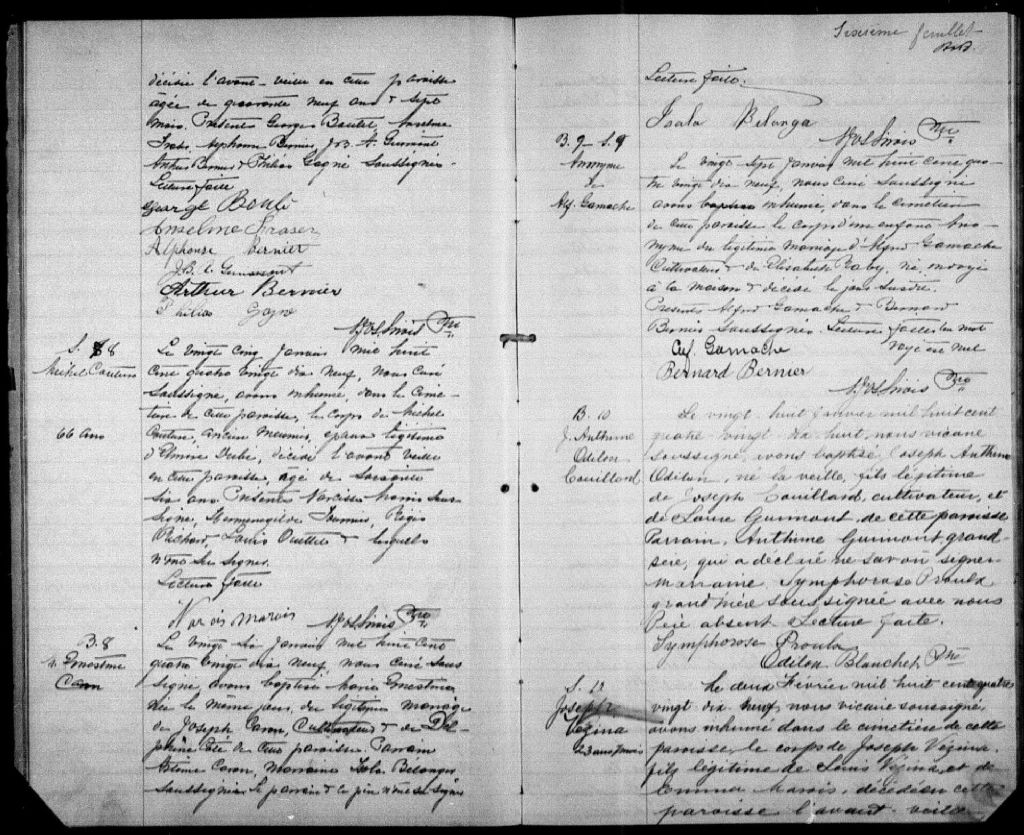 décédée l'avant-veille en cette paroisse
agée de quarante neuf ans & sept
mois. Présents George Boulet, Anselme
Alphonse Bernier, J.B. A. Guimont
Arthur Bernier & Philias Gagné Soussignés.
Lecture faite
George Boulé
Anselme Fraser
Alphonse Bernier
J.B. A. Guimont
Arthur Bernier
Philias Gagné
Ptre
S. 8
Michel Couture
66 ans
Le vingt cinq Janvier mil huit
cent quatre vingt dix neuf, Nous curé
Soussigné, avons inhumé, dans le cime-
tière de cette paroisse, le corps de Michel
Couture, ancien meunier, époux légitime
d'Elmire Dubé, décédé l'avant veille
en cette paroisse, agé de soixante
six ans Présents Narcisse Marois Sous-
signé, Hermenegilde Fournier, Régis
Richard, Louis Ouellet & lesquels
n'ont su signer.
Lecture faite
Narcis marois
Ptre
B. 8
M. Ernestine
Caron
Le vingt six Janvier mil huit cent
quatre vingt dix neuf nous curé Sous
signé, avons baptisé Maria Ernestine
née le même jour, du légitime mariage
de Joseph Caron, Cultivateur & de Del-
phine Côté de cette paroisse. Parrain
Caron, Marraine Isola Bélanger
Soussignée. Le parrain & le père n'ont su signer
Sixième feuillet
Lecture faite.
Isola Belanga
Ptre
B. 9 - S. 9
Anonyme
de
Alf. Gamache
Le vingt-sept Janvier mil huit cent qua-
tre vingt dix neuf, nous curé Soussigné
avons inhumé, dans le cimetière
de cette paroisse le corps d'un enfant Ano-
nyme du légitime mariage d'Alfred Gamache
Cultivateur & de Elisabeth Baby, né, ondoyé
à la maison & décédé le jour susdit.
Présents Alfred Gamache & Bernard
Bernier Soussignés. Lecture faite. Un mot
rayé est nul
Alf. Gamache
Bernard Bernier
Ptre
B. 10
J. Anthime
Odilon
Couillard
Le vingt huit janvier mil huit cent
quatre vingt dix huit, nous vicaire
soussigné, avons baptisé Joseph Anthime
Odilon, né la veille, fils légitime
de Joseph Couillard, cultivateur, et
de Guimont, de cette paroisse
Parrain, Anthime Guimont, grand-
père, qui a déclaré ne savoir signer
Marraine Symphorose Proulx
grand'mère soussignée avec nous
Père absent. Lecture faite.
Symphorose Proulx
Odilon Blanchet, Ptre
S. 10
Joseph
Vézina
23 ans
Le deux Février mil huit cent quatre
vingt dix neuf, nous vicaire soussigné,
avons inhumé dans le cimetière de cette
paroisse, le corps de Joseph Vézina,
fils légitime de Louis Vézina, et de
Emma Marois, décédé en cette
paroisse l'avant-veille